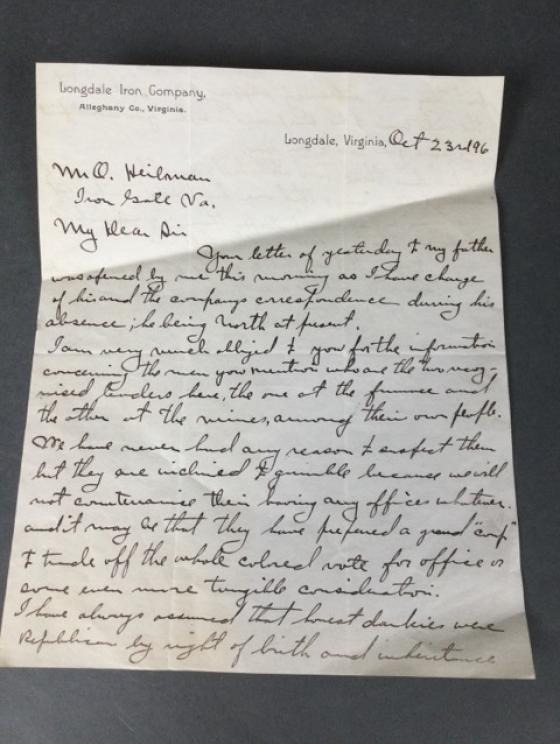 Longdale Iron Company,
Alleghany Co., Virginia.
Longdale, Virginia, Oct 23rd 96
Mr O. Heilman
Iron Gate Va.
My Dear Sir
Your letter of yesterday to my father
was opened by me this morning as I have charge
of his and the company's correspondence during his
absence; he being North at present.
I am very much obliged to you for the information
concerning the men you mention who are the two recog-
nised leaders here, the one at the furnace and
the other at the mines, among their own people.
We have never had any reason to suspect them
but they are inclined to grumble because we will
not countenance their having any offices whatever.
and it may be that they have prepared a grand "coup"
to trade off the whole colored vote for office or
some even more tangible consideration.
I have always assumed that honest darkies were
Republican by right of birth and inheritance